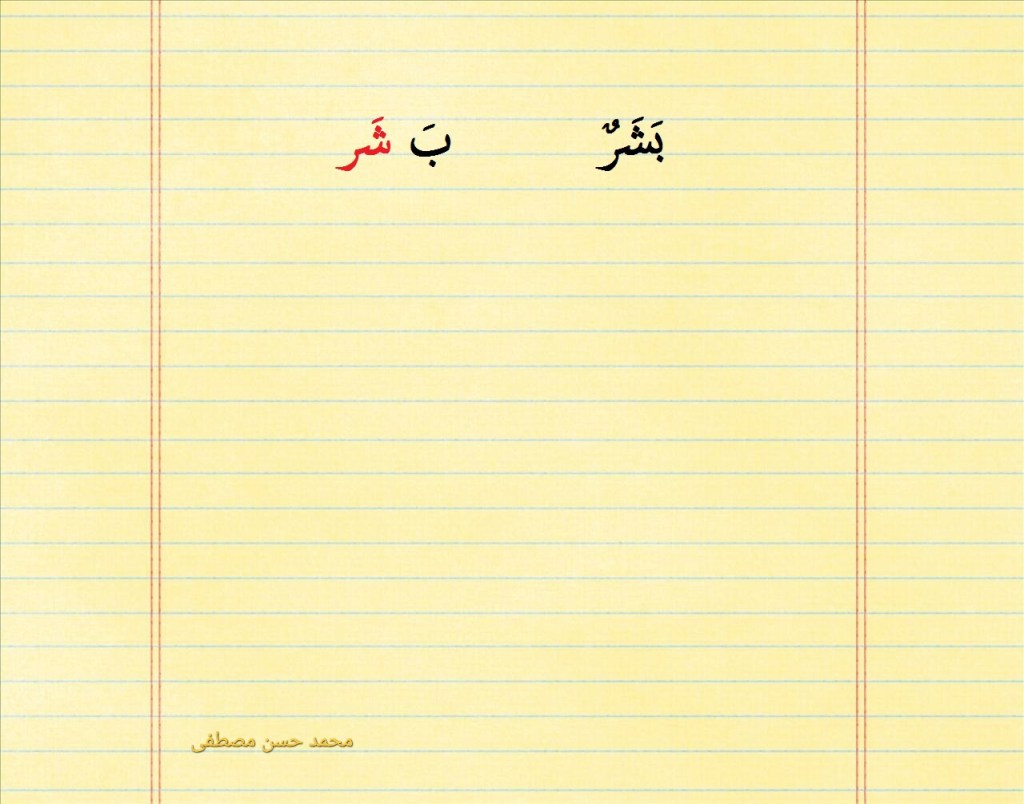 بَشَرٌ بَ شَر
محمد حسن مصطفى